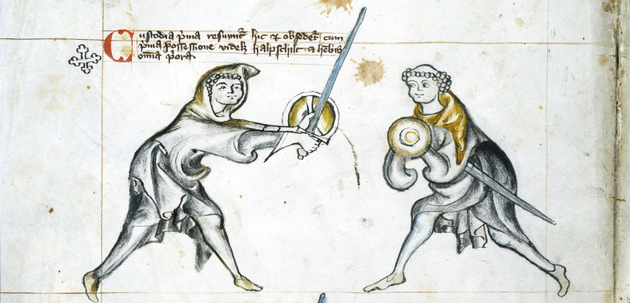 Custodia p̃ma resumit᷑ hic ⁊ obsedet᷑ cum
p̃ma possessione videlꝫ halpschilt ⁊ hebis
omnia p̃ora